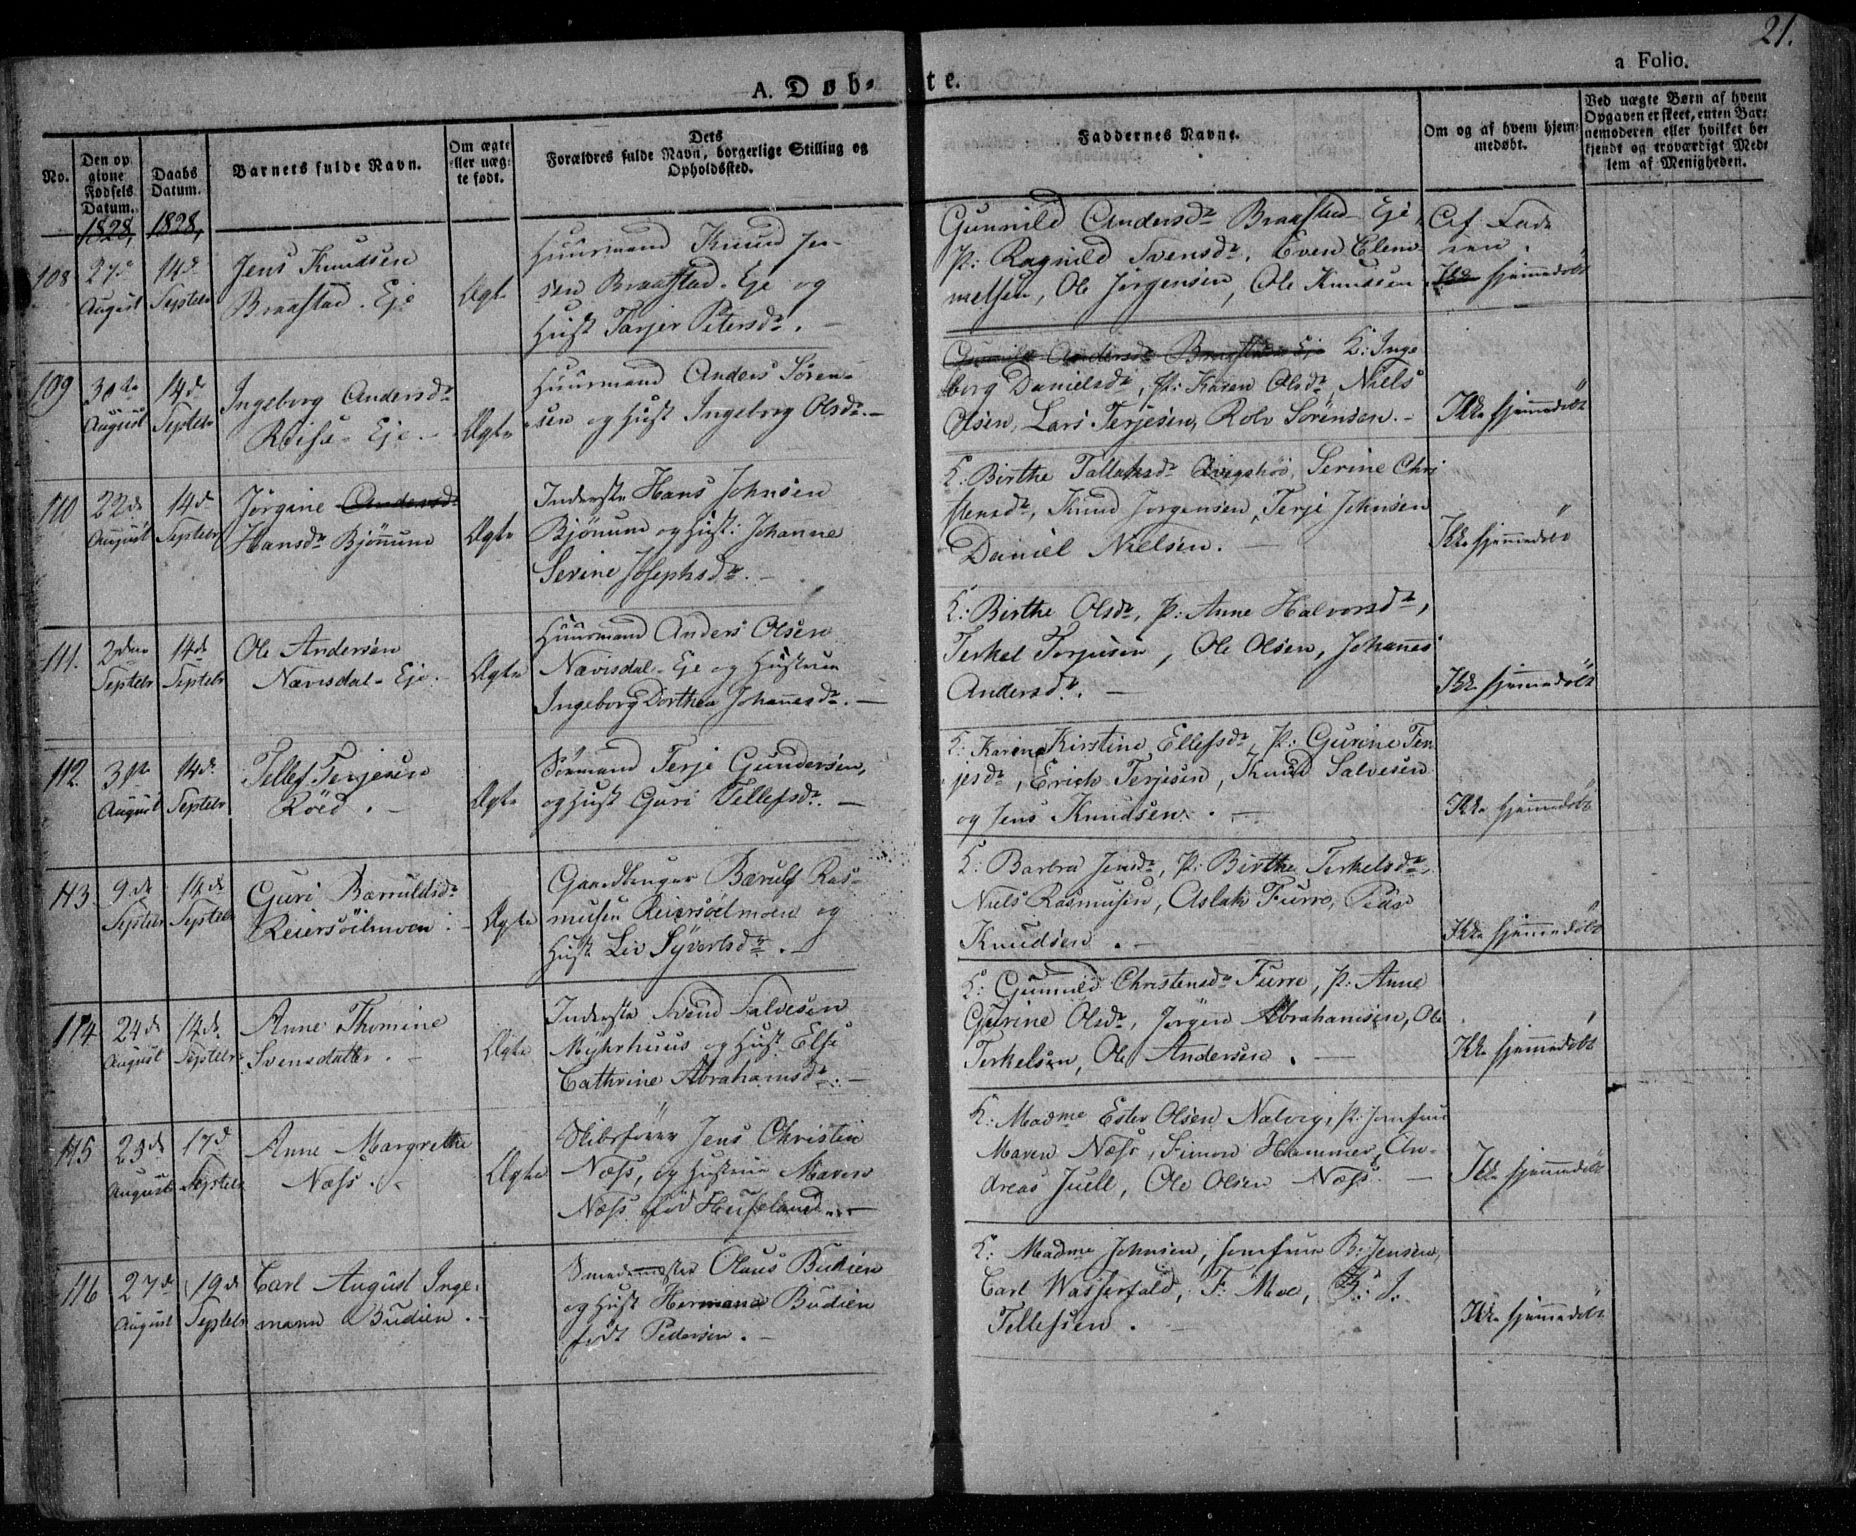 21.
a Folio.
A. Døb-te.
No.
Den op
givne
Fødsels
Datum.
Daabs
Datum.
Barnets fulde Navn.
Om ægte
eller uæg-
te født.
Dets
Forældres fulde Navn, borgerlige Stilling og
Opholdssted.
Faddernes Navne.
Om og af hvem hjem-
medøbt.
Ved uægte Børn af hvem
Opgaven er skeet, enten Bar-
nemoderen eller hvilket be-
kjendt og troværdigt Med-
lem af Menigheden.
1828, 1828,
108
27de
August
14de
Septebr
Jens Knudsen
Braastad-Eje
Ægte
Huusmand Knud Jen-
sen Braastad-Eje og
Hust Tarjer Petersdr. —
Gunnild Andersdr Braastad-Eje,
P: Ragnild Svensdr, Even Clem-
metsen, Ole Jørgensen, Ole Knudsen
Af Fade
ren.
Ikke hjemmedøbt
109
30te
August
14de
Septebr
Ingeborg Andersdr
Reise-Eje. —
Ægte
Huusmand Anders Søren-
sen og Hust Ingeborg Olsdr. —
Gunnild Andersdr Braastad-Eje K: Inge
borg Danielsdr, P: Karen Olsdr, Niels
Olsen, Lars Terjesen, Rolv Sørensen. —
Ikke hjemmedøbt
110
22de
August
14de
Septebr
Jørgine Andersdr
Hansdr Bjønnum
Ægte
Inderste Hans Johnsen
Bjønum og Hust: Johanne
Serine Josephsdr. —
K: Birthe Tallaksdr Angshoe, Serine Chri
stensdr, Knud Jørgensen, Terje Johnsen
Daniel Nielsen. —
Ikke hjemmedøbt
111.
2den
Septebr
14de
Septebr
Ole Andersen
Nævisdal-Eje.
Ægte
Huusmand Anders Olsen
Nævisdal-Eje og Hustrue
Ingeborg Dorthea Johannesdr. —
K: Birthe Olsdr, P: Anne Halvorsdr,
Terkel Terjusen, Ole Olsen, Johannes
Andersdr. —
Ikke hjemmedøbt
112.
31te
August
14de
Septebr
Tellef Terjesen
Røed. —
Ægte
Sømand Terje Gundersen,
og Hust Guri Tellefsdr. —
K: Karine Kirstine Ellefsdr, P: Gurine Ter
jesdr, Erich Terjesen, Knud Salvesen
og Jens Knudsen. —
Ikke hjemmedøbt
113.
9de
Septebr
14de
Septebr
Guri Bæruldsdr
Reiersöilmoen. —
Ægte
Gaardbruger Bærulf Ras-
musen Reiersöelmoen og
Hust Liv Syvertsdr. —
K: Barbra Jensdr, P: Birthe Terkelsdr,
Niels Rasmusen, Aslak Furre, Peder
Knudsen. —
Ikke hjemmedøbt
114
24de
August
14de
Septebr
Anne Thomine
Svensdatter. —
Ægte
Inderste Svend Salvesen
Myhrhuus og Hust Else
Cathrine Abrahamsdr. —
K: Gunnild Christensdr Furre, P: Anne
Gurine Olsdr, Jørgen Abrahamsen, Ole
Terkelsen, Ole Andersen. —
Ikke hjemmedøbt
115
23de
August
17de
Septebr
Anne Margrethe
Næss. —
Ægte
Skibsfører Jens Christen
Næss, og Hustrue Maren
Næss født Heuseland. —
K: Madme Ester Olsen Nalvig, P: Jomfrue
Maren Næss, Simon Hammer, An-
dreas Juell, Ole Olsen Næss. —
Ikke hjemmedøbt
116
27de
August
19de
Septebr
Carl August Inge-
mann Budien. —
Smedemester Olaus Budien
og Hust Hermana Budien
født Pedersen. —
K: Madme Johnsen, Jomfrue B: Jensen,
Carl Wasserfald, F: Moe, J:
Tellefsen. —
Ikke hjemmedøbt